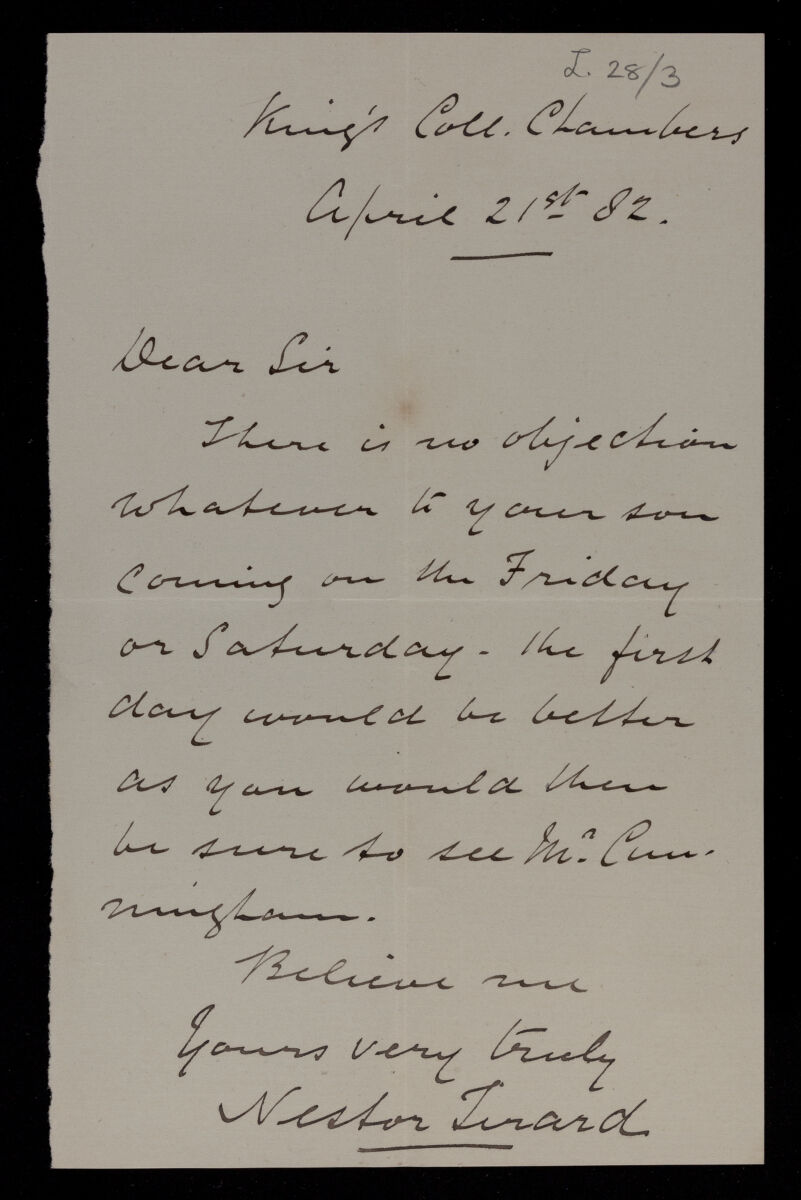 L. 28/3
King's Coll. Chambers
April 21st 82.
Dear Sir
There is no objection
whatever to your son
coming on the Friday
or Saturday - the first
day would be better
as you would then
be sure to see Mr. Cun-
ningham.
Believe me
Yours very truly
Nestor Tirard